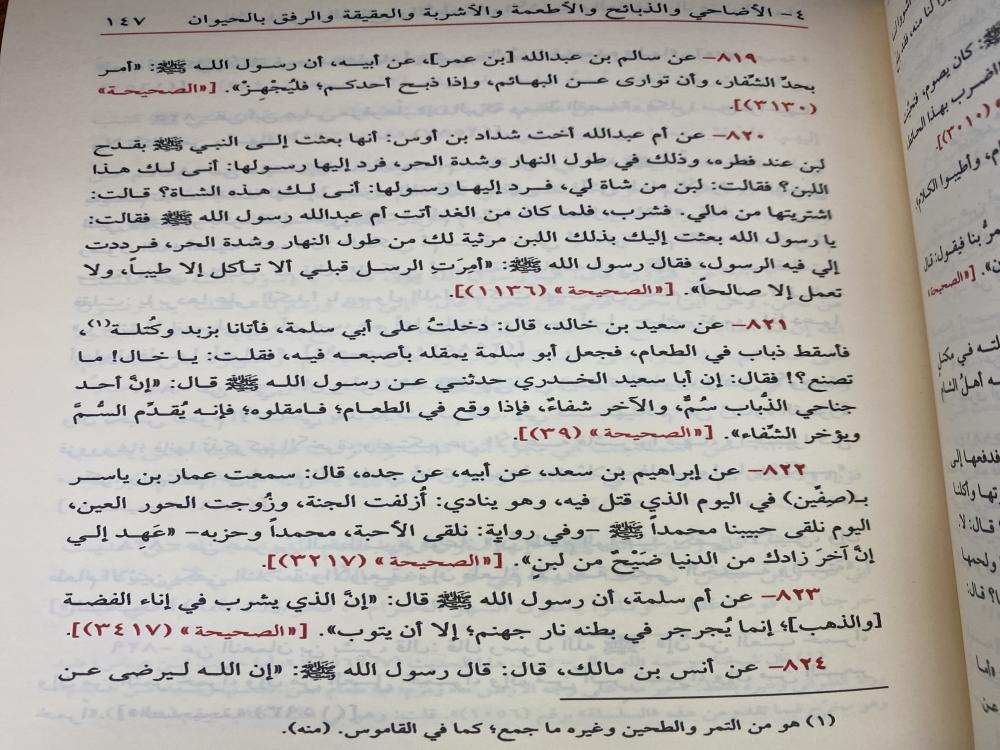 ٤- الأضاحي والذبائح والأطعمة والأشربة والعقيقة والرفق بالحيوان ١٤٧
٨١٩- عن سالم بن عبدالله [بن عمر]، عن أبيه، أن رسول الله ﷺ: «أمر
بحدِّ الشِّفار، وأن توارى عن البهائم، وإذا ذبح أحدكم؛ فليُجهِزْ». [«الصحيحة»
(٣١٣٠)].
٨٢٠- عن أم عبدالله أخت شداد بن أوس: أنها بعثت إلى النبي ﷺ بقدح
لبن عند فطره، وذلك في طول النهار وشدة الحر، فرد إليها رسولها: أنى لك هذا
اللبن؟ فقالت: لبن من شاة لي، فرد إليها رسولها: أنى لك هذه الشاة؟ قالت:
اشتريتها من مالي. فشرب، فلما كان من الغد أتت أم عبدالله رسول الله ﷺ فقالت:
يا رسول الله بعثت إليك بذلك اللبن مرثية لك من طول النهار وشدة الحر، فرددت
إلي فيه الرسول، فقال رسول الله ﷺ: «أمِرَتِ الرسل قبلي ألا تأكل إلا طيباً، ولا
تعمل إلا صالحاً». [«الصحيحة» (١١٣٦)].
٨٢١- عن سعيد بن خالد، قال: دخلتُ على أبي سلمة، فأتانا بزبد وكُتلة(١)،
فأسقط ذباب في الطعام، فجعل أبو سلمة يمقله بأصبعه فيه، فقلت: يا خال! ما
تصنع؟! فقال: إن أبا سعيد الخدري حدثني عن رسول الله ﷺ قال: «إنَّ أحد
جناحي الذُّباب سُمٌّ، والآخر شفاءٌ، فإذا وقع في الطعام؛ فامقلوه؛ فإنه يُقدّم السُّمَّ
ويؤخر الشِّفاء». [«الصحيحة» (٣٩)].
٨٢٢- عن إبراهيم بن سعد، عن أبيه، عن جده، قال: سمعت عمار بن ياسر
بـ(صِفِّين) في اليوم الذي قتل فيه، وهو ينادي: أُزلفت الجنة، وزُوجت الحور العين،
اليوم نلقى حبيبنا محمداً ﷺ -وفي رواية: نلقى الأحبة، محمداً وحزبه- «عَهِد إلي
إنَّ آخرَ زادك من الدنيا ضَيْحٌ من لبنٍ». [«الصحيحة» (٣٢١٧)].
٨٢٣- عن أم سلمة، أن رسول الله ﷺ قال: «إنَّ الذي يشرب في إناء الفضة
[والذهب]؛ إنما يُجرجر في بطنه نار جهنم؛ إلا أن يتوب». [«الصحيحة» (٣٤١٧)].
٨٢٤- عن أنس بن مالك، قال: قال رسول الله ﷺ: «إن الله ليرضى عن
(١) هو من التمر والطحين وغيره ما جمع؛ كما في القاموس. (منه).